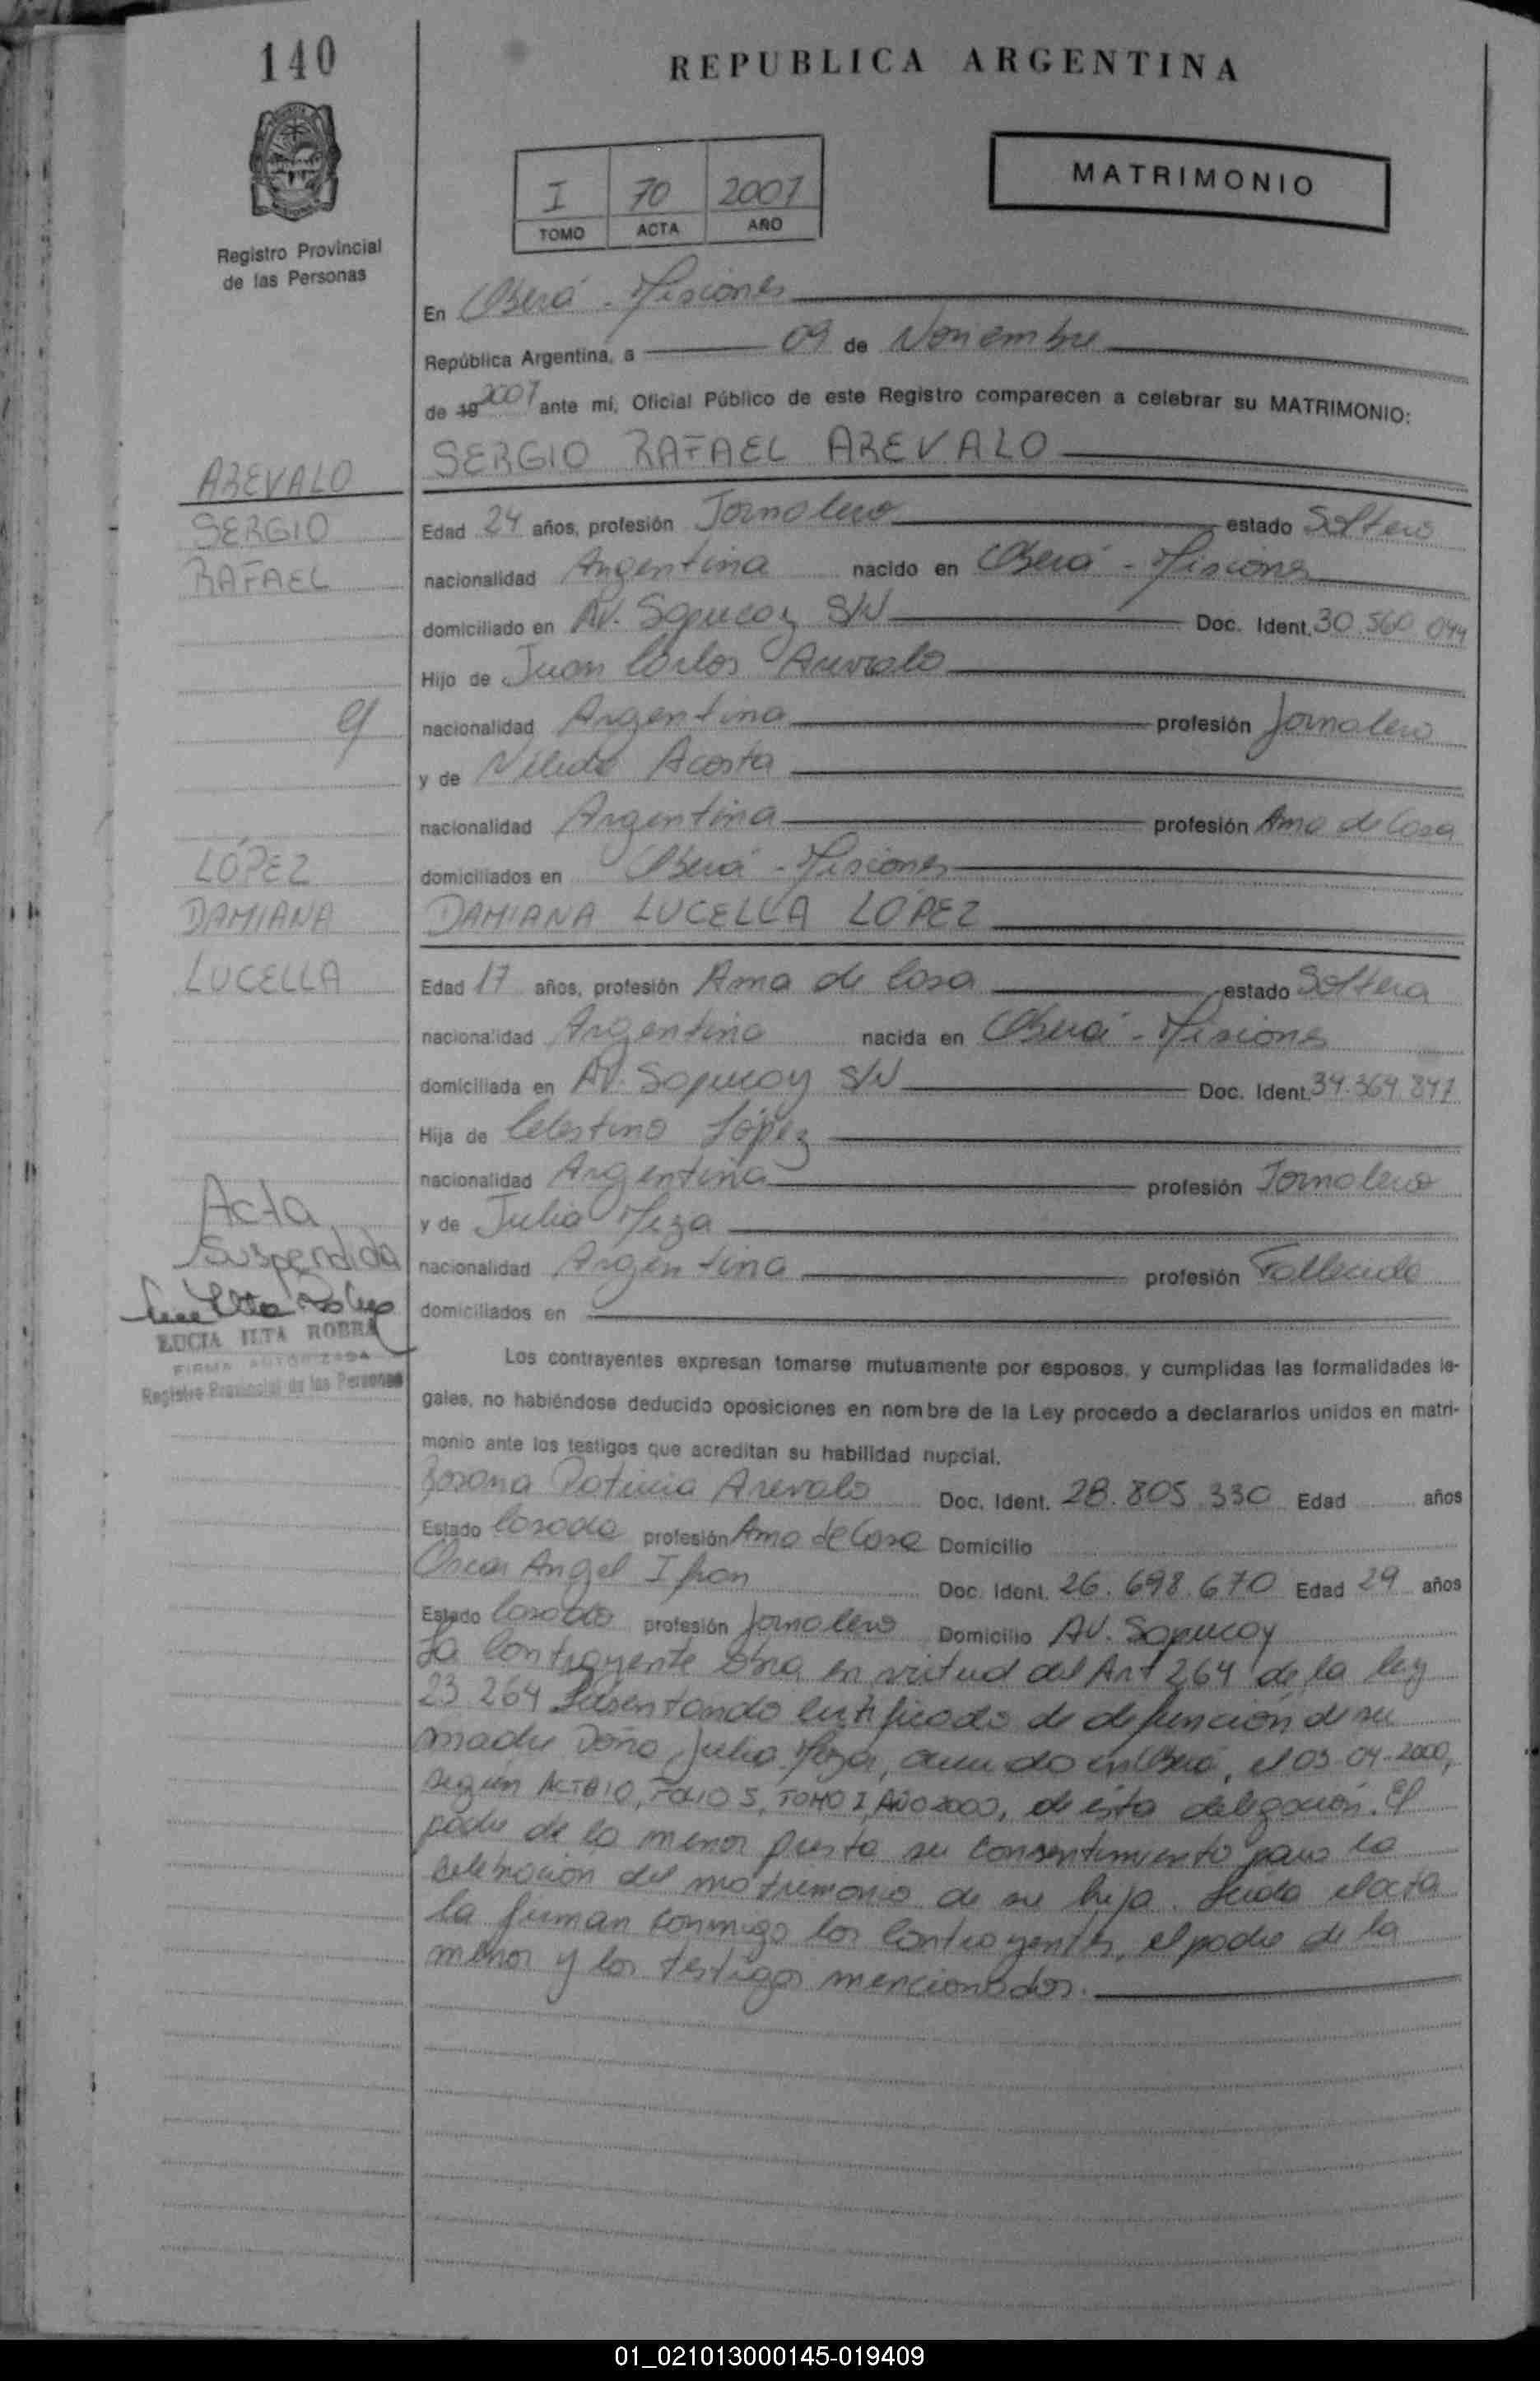 140
REPUBLICA ARGENTINA
MATRIMONIO
I 70 2007
TOMO ACTA AÑO
Registro Provincial
de las Personas
En Oberá - Misiones
República Argentina, a 09 de Noviembre
de 19 2007 ante mí, Oficial Público de este Registro comparecen a celebrar su MATRIMONIO:
SERGIO RAFAEL AREVALO
AREVALO
SERGIO
RAFAEL
Edad 24 años, profesión Jornalero estado Soltero
nacionalidad Argentina nacido en Oberá - Misiones
domiciliado en Av. Sapucay S/N Doc. Ident. 30.560.044
Hijo de Juan Carlos Arevalo
nacionalidad Argentina profesión Jornalero
y de Nélida Acosta
nacionalidad Argentina profesión Ama de Casa
domiciliados en Oberá - Misiones
DAMIANA LUCELLA LÓPEZ
LÓPEZ
DAMIANA
LUCELLA
Edad 17 años, profesión Ama de Casa estado Soltera
nacionalidad Argentina nacida en Oberá - Misiones
domiciliada en Av. Sapucay S/N Doc. Ident. 34.364.847
Hija de Celestino López
nacionalidad Argentina profesión Jornalero
y de Julia Meza
nacionalidad Argentina profesión Fallecida
domiciliados en
Acta
Suspendida
LUCIA ILTA ROBRA
FIRMA AUTORIZADA
Registro Provincial de las Personas
Los contrayentes expresan tomarse mutuamente por esposos, y cumplidas las formalidades le-
gales, no habiéndose deducido oposiciones en nombre de la Ley procedo a declararlos unidos en matri-
monio ante los testigos que acreditan su habilidad nupcial.
Rosana Patricia Arevalo Doc. Ident. 28.805.330 Edad años
Estado Casada profesión Ama de Casa Domicilio
Oscar Angel Doc. Ident. 26.698.670 Edad 29 años
Estado Casado profesión Jornalero Domicilio Av. Sapucay
La Contrayente obra en virtud del Art 264 de la ley
23.264 Presentando Certificado de defunción de su
madre Doña Julia Meza, ocurrido en Oberá, el 03-04-2000,
según ACTA 10, FOLIO 5, TOMO I, AÑO 2000, de ésta delegación. El
padre de la menor presta su consentimiento para la
celebración del matrimonio de su hija. Leída el acta
la firman conmigo los Contrayentes, el padre de la
menor y los testigos mencionados.
01_021013000145-019409